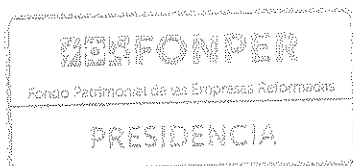 FONPER
Fondo Patrimonial de las Empresas Reformadas
PRESIDENCIA